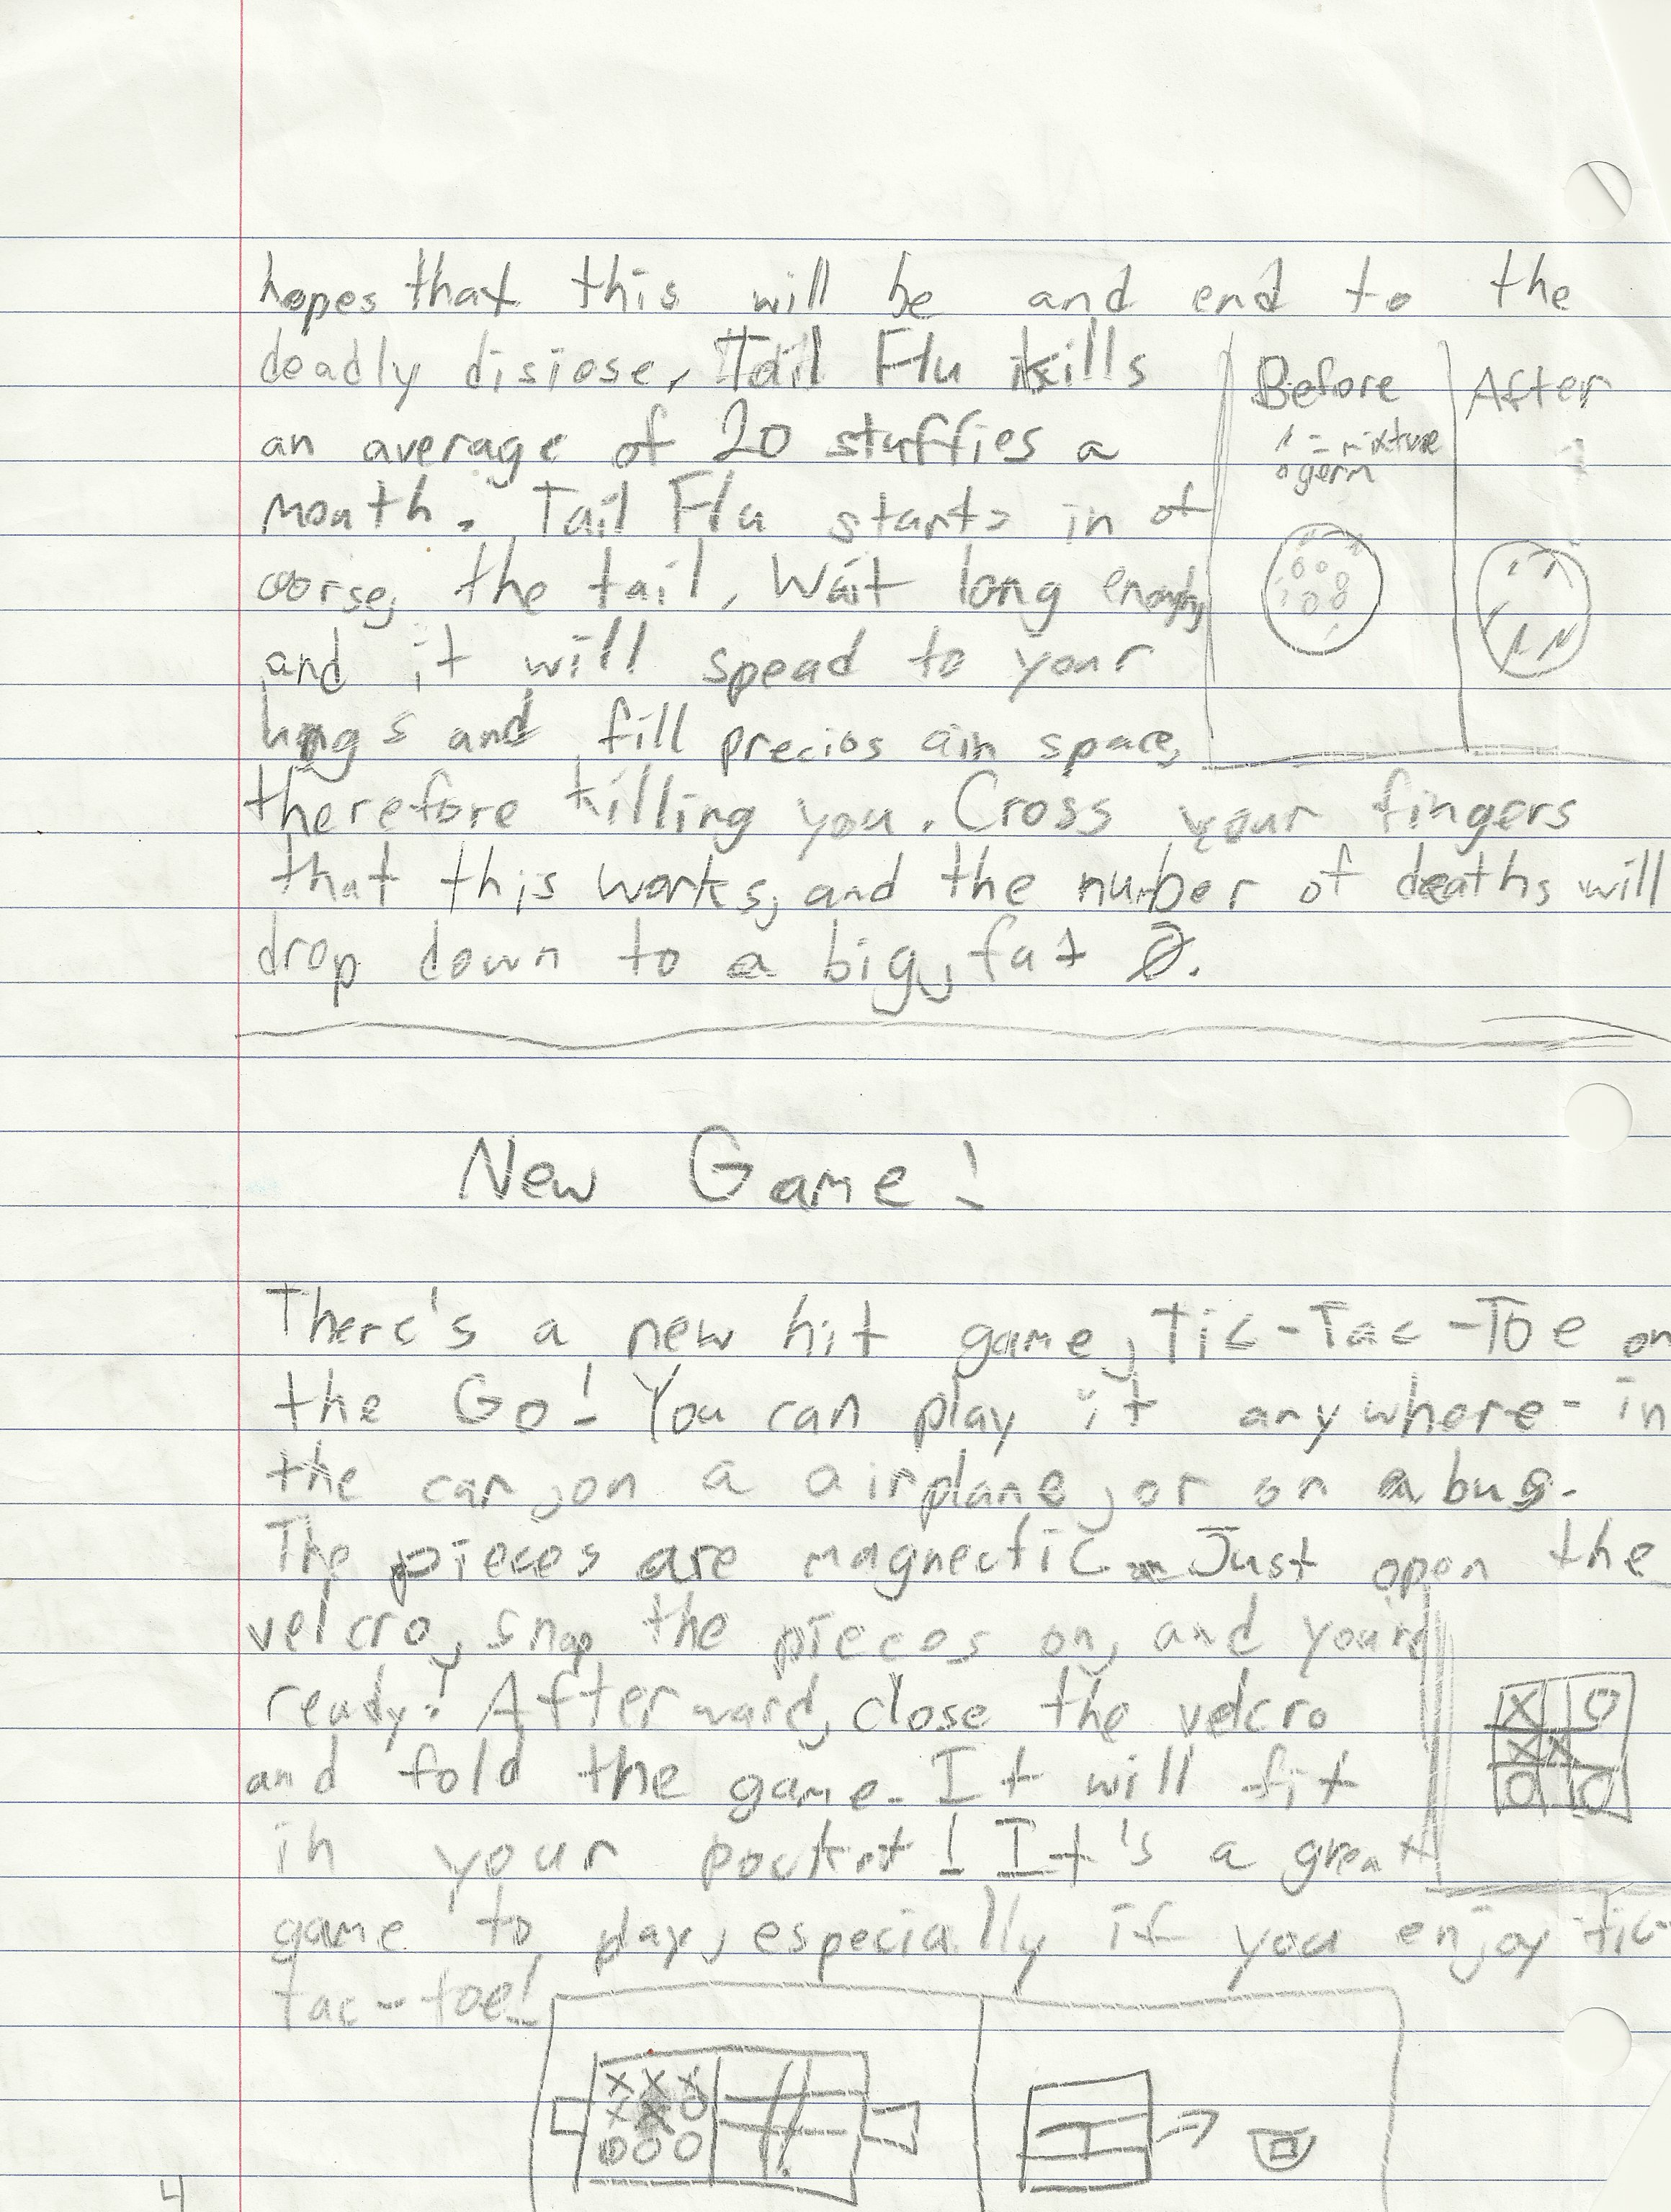 hopes that this will be and end to the
deadly disiose, Tail Flu kills
an average of 20 stuffies a
month. Tail Flu starts in of
corse, the tail. Wait long enough,
and it will spead to your
lungs and fill precios air space,
therefore killing you. Cross your fingers
that this works, and the number of deaths will
drop down to a big, fat 0.
Before
= mixture
o germ
After
New Game!
There's a new hit game, Tic-Tac-Toe on
the Go! You can play it anywhere - in
the car, on a airplane, or on a bus.
The pieces are magnectic. Just open the
velcro, snap the pieces on, and your
ready! Afterward, close the velcro
and fold the game. It will fit
in your pocket! It's a great
game to play, especially if you enjoy tic-
tac-toe!
X O
X X
O O
X X X
X X O
O O O
4